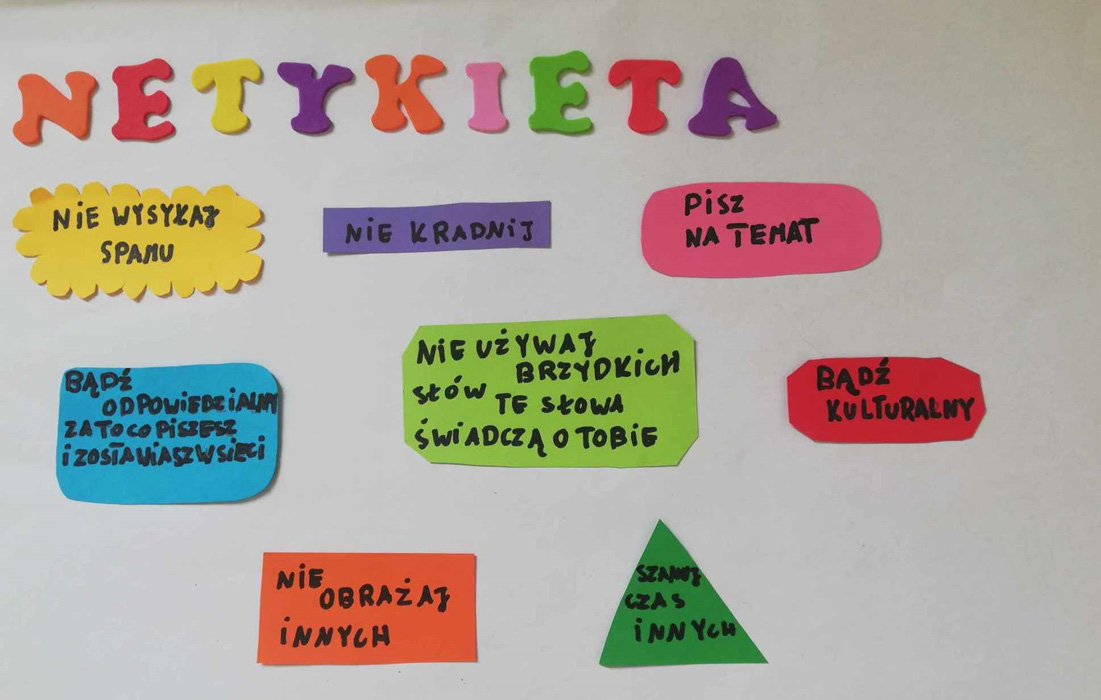 NETYKIETA
NIE WYSYŁAJ
SPAMU
NIE KRADNIJ
PISZ
NA TEMAT
BĄDŹ
ODPOWIEDZIALNY
ZA TO CO PISZESZ
I ZOSTAWIASZ W SIECI
NIE UŻYWAJ
BRZYDKICH
SŁÓW
TE SŁOWA
ŚWIADCZĄ O TOBIE
BĄDŹ
KULTURALNY
NIE
OBRAŻAJ
INNYCH
SZANUJ
CZAS
INNYCH